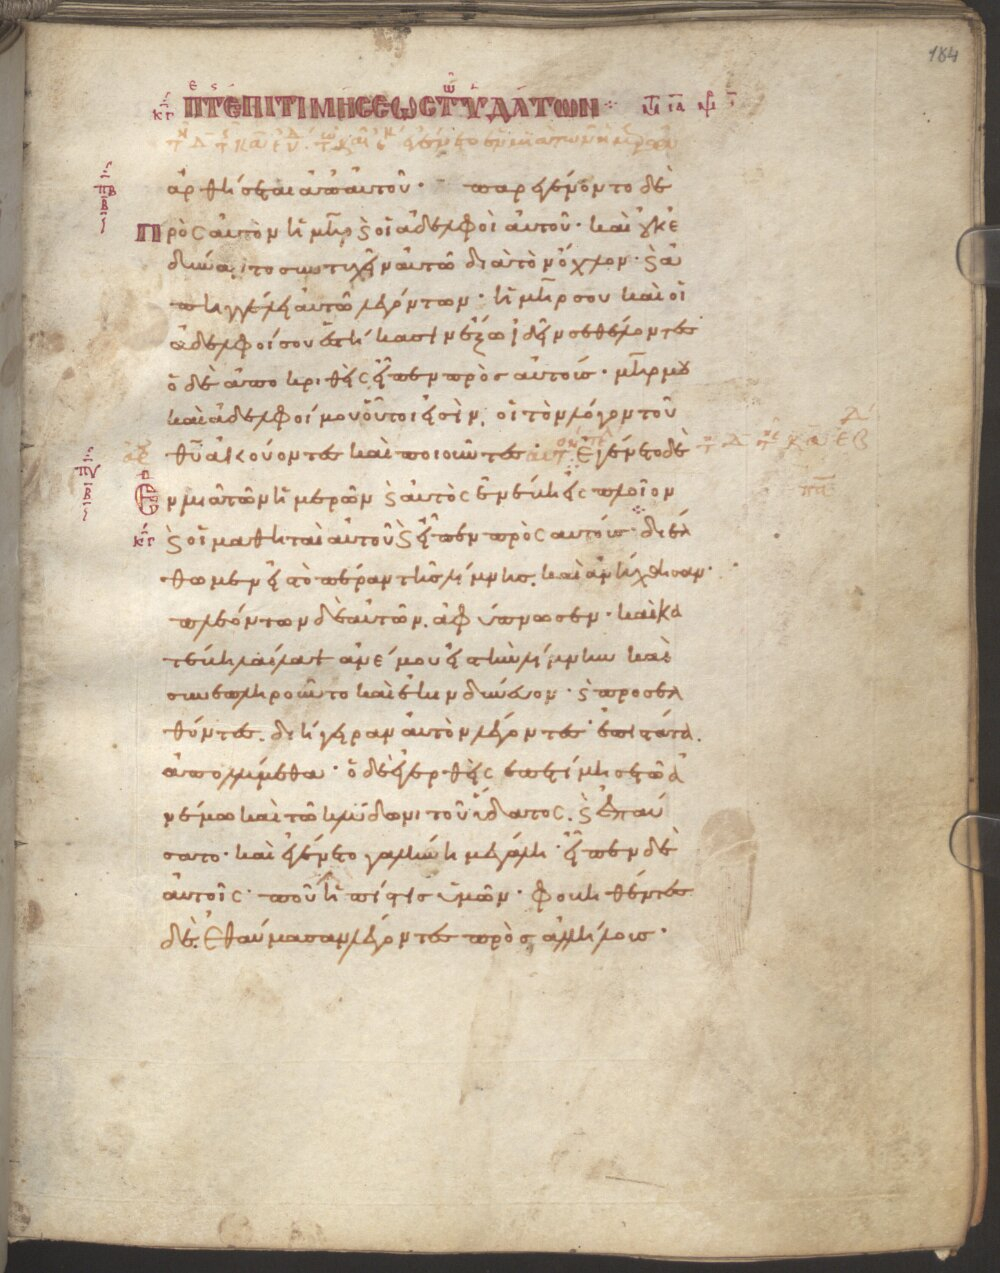 184
κγ ΠΤ ΕΠΙΤΙΜΗϹΕΩϹ Τ ΥΔΑΤΩΝ
ἀρθήσεται ἀπ αὐτοῦ· παρεγένοντο δὲ
πρὸς αὐτὸν ἡ μηρ ϗ οἱ ἀδελφοὶ αὐτοῦ· καὶ οὐκ ἐ
δύναντο συντυχεῖν αὐτῶ διὰ τὸν ὄχλον· ϗ ἀ
πηγγέλη αὐτῶ λεγόντων· ἡ μηρ σου καὶ οἱ
ἀδελφοί σου ἑστήκασιν ἔξω ἰδεῖν σε θέλοντες
ὁ δὲ ἀποκριθεὶς εἶπεν πρὸς αὐτοὺς· μηρ μου
καὶ ἀδελφοί μου οὗτοι εἰσὶν, οἱ τὸν λόγον τοῦ
θυ ἀκούοντες καὶ ποιοῦντες αὐτ. Ἐγένετο δὲ
ἐν μιᾶ τῶν ἡμερῶν ϗ αὐτὸς ἐνέβη εἰς πλοῖον
κγ ϗ οἱ μαθηταὶ αὐτοῦ ϗ εἶπεν πρὸς αὐτούς· διέλ
θωμεν εἰς τὸ πέραν τῆς λίμνης. καὶ ἀνήχθησαν·
πλεόντων δὲ αὐτῶν. ἀφύπνωσεν· καὶ κα
τέβη λαῖλαψ ἀνέμου εἰς τὴν λίμνην καὶ
συνεπληροῦντο καὶ ἐκινδύνευον· ϗ προσελ
θόντες. διήγειραν αὐτὸν λέγοντες· ἐπιστάτα.
ἀπολλύμεθα· ὁ δὲ ἐγερθεὶς ἐπετίμησε τῶ ἀ
νέμω καὶ τῶ κλύδωνι τοῦ ὕδατος. ϗ ἐπαύ
σατο· καὶ ἐγένετο γαλήνη μεγάλη· εἶπεν δὲ
αὐτοῖς· ποῦ ἡ πίστις ὑμῶν· φοβηθέντες
δὲ. ἐθαύμασαν λέγοντες πρὸς ἀλλήλους·